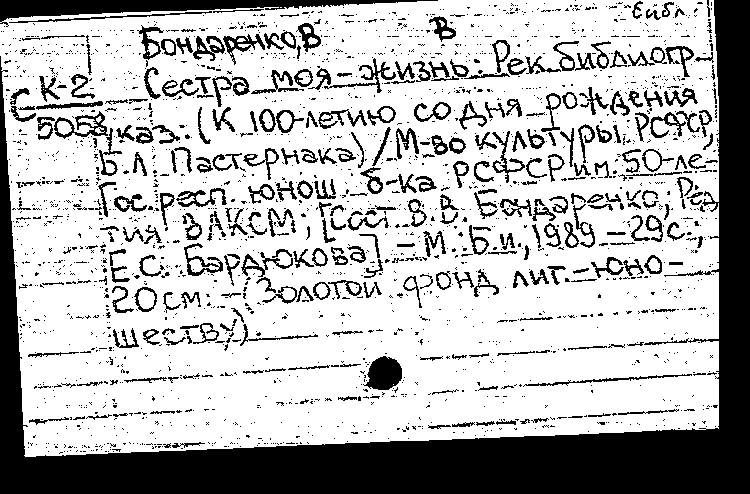 библ.
Бондаренко, В В
К-2 Сестра моя - жизнь: Рек. библиогр.
С
5058 указ.: (К 100-летию со дня рождения
Б.Л. Пастернака) / М-во культуры РСФСР,
Гос. респ. юнош. б-ка РСФСР им. 50-ле-
тия ВЛКСМ; [Сост. В.В. Бондаренко; Ред.
Е.С. Бардюкова]. - М.: Б.и., 1989 - 29с.;
20см. - (Золотой фонд лит. - юно-
шеству).